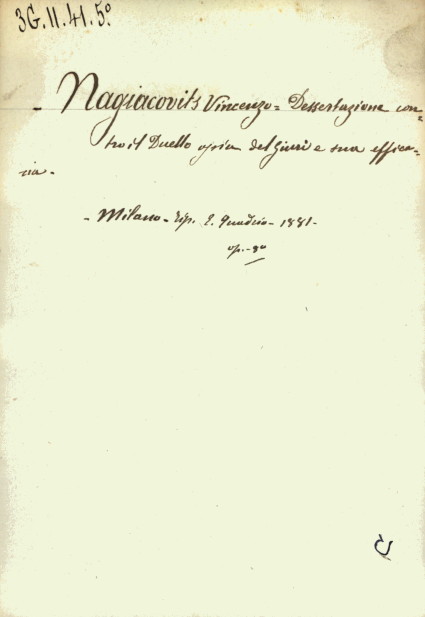 3G.II.41.5º
- Nagiacovits Vincenzo = Dessertazione con=
tro il Duello ossia del Giurì e sua effica=
cia -
- Milano - Tip. E. Quadrio - 1881 -
op. - 8º